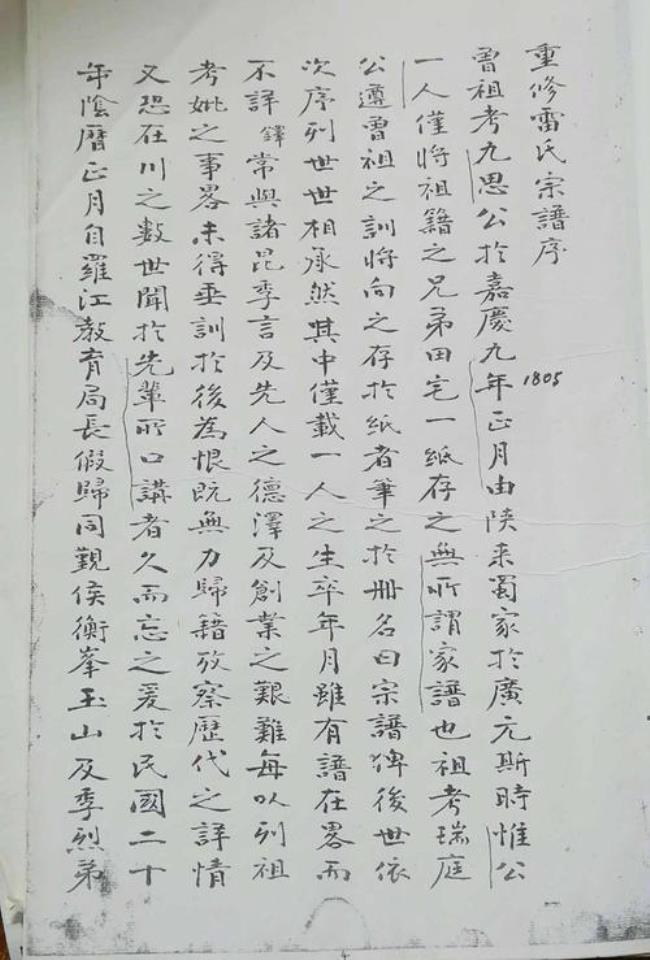 重修雷氏宗譜序
曾祖考九思公於嘉慶九年正月由陝来蜀家於廣元斯時惟公
1805
一人僅將祖籍之兄弟田宅一紙存之無所謂家譜也祖考瑞庭
公遵曾祖之訓將向之存於紙者筆之於冊名曰宗譜俾後世依
次序列世世相承然其中僅載一人之生卒年月雖有譜在畧而
不詳鐸常與諸昆季言及先人之德澤及創業之艱難每以列祖
考妣之事畧未得垂訓於後為恨既無力歸籍攷察歷代之詳情
又恐在川之數世聞於先輩所口講者久而忘之爰於民國二十
年陰曆正月自羅江教育局長假歸同觀侯衡峯玉山及季烈弟